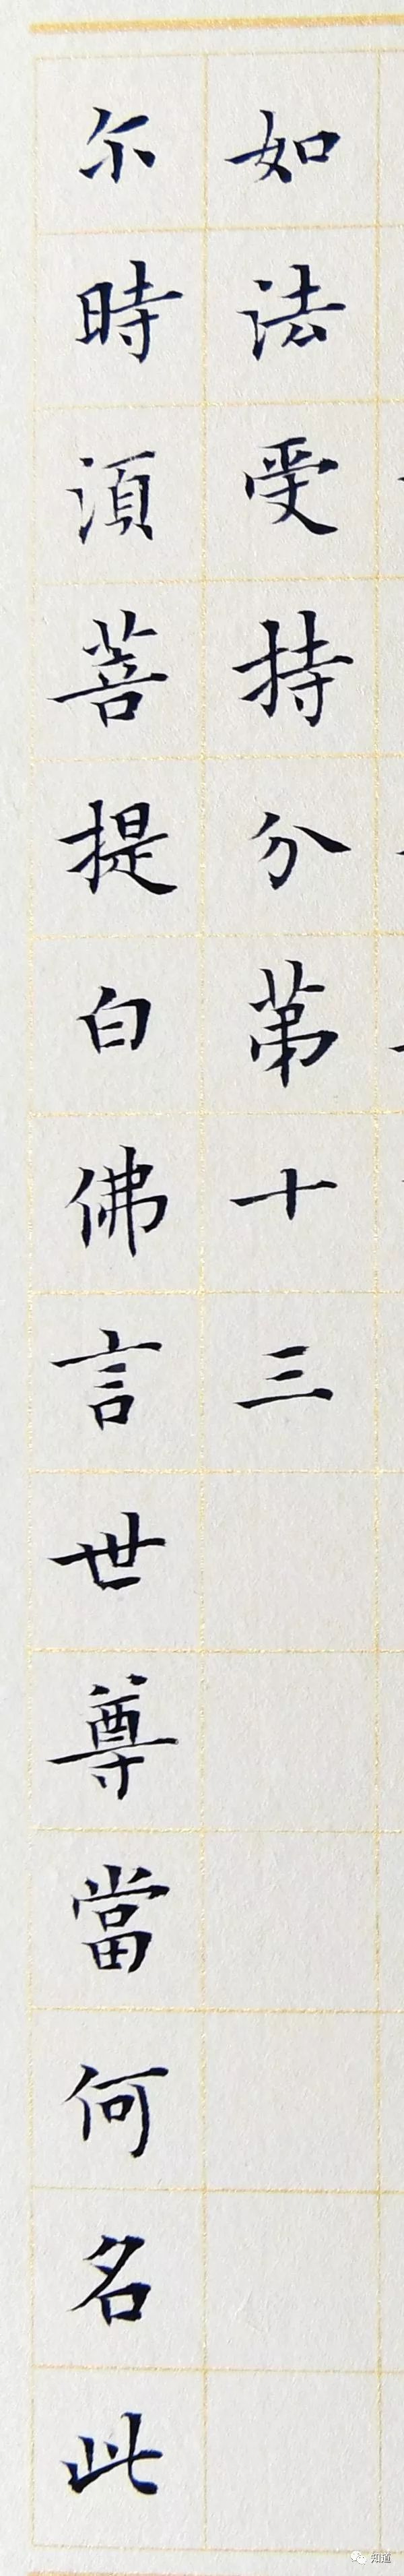 如法受持分第十三
尔時湏菩提白佛言世尊當何名此
知道